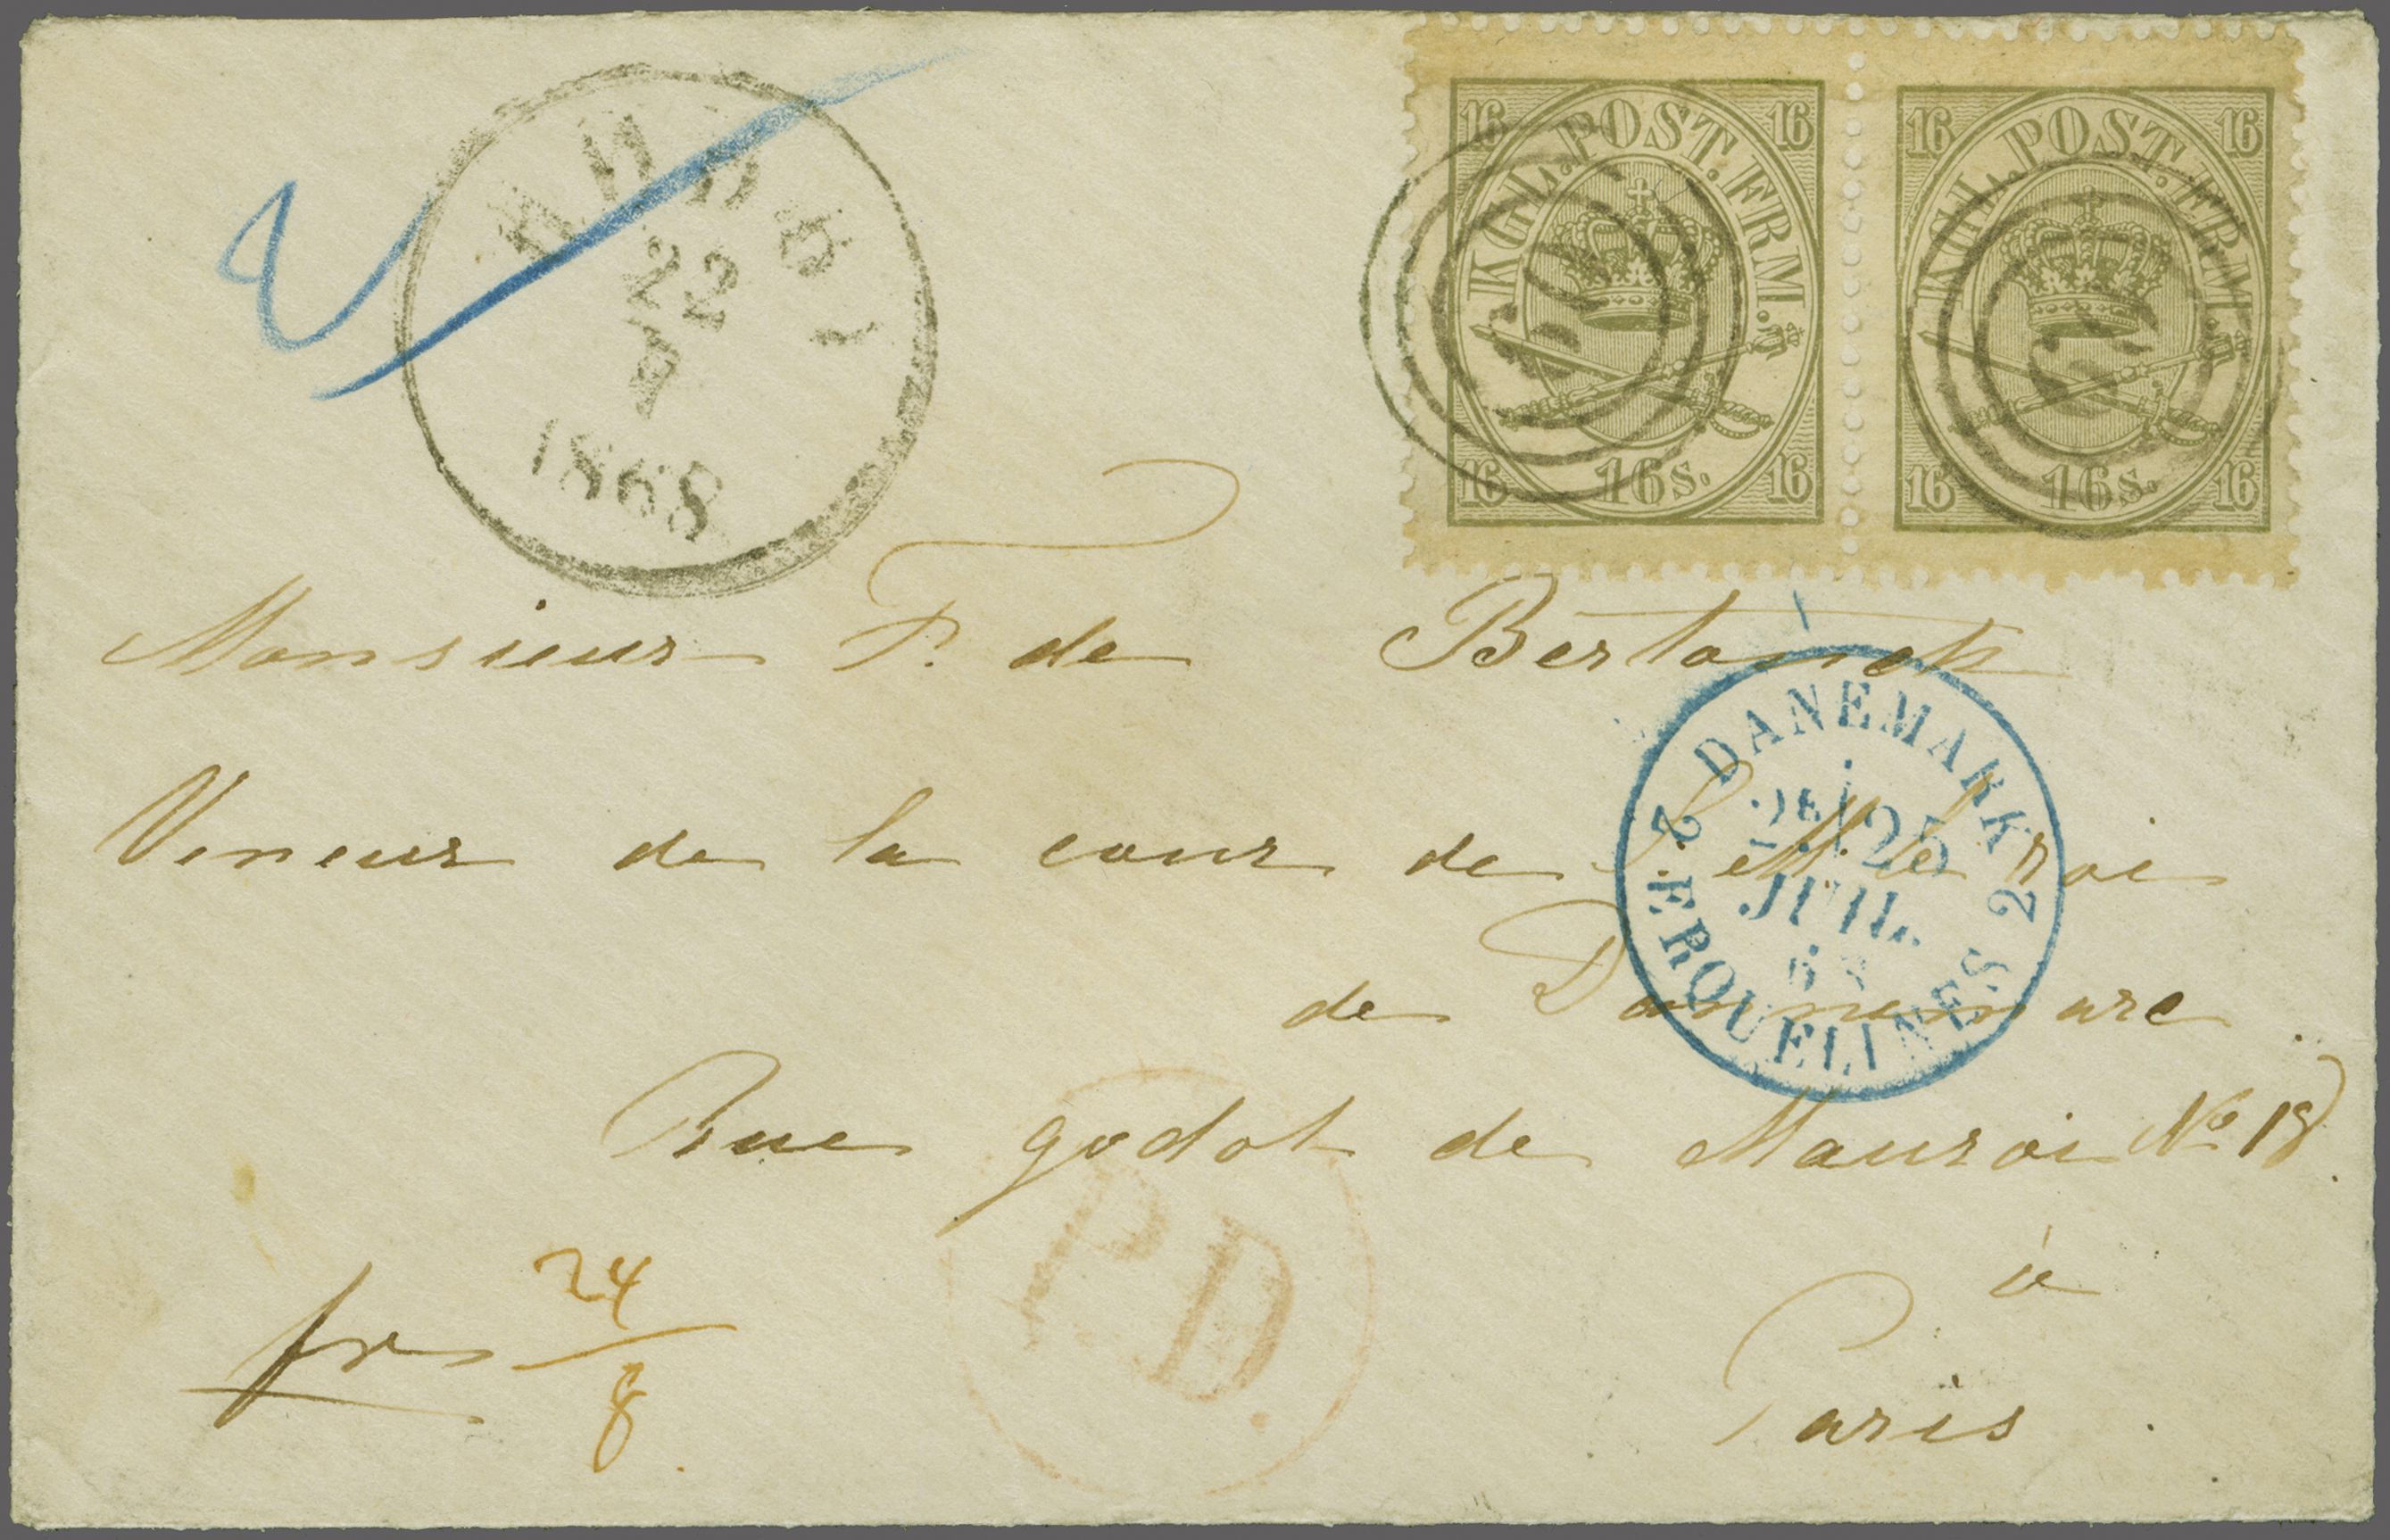 22
7
1868
16 16
KGL. POST. FRM.
16 16s. 16
16 16
KGL. POST. FRM.
16 16s. 16
Monsieur F. de
Veneur de la cour de S. M. le roi
de Dannemarc
Rue godot de Mauroi No 18
à
Paris
2 DANEMARK 2
25
JUIL.
68
ERQUELINES
P.D.
fr 24
8